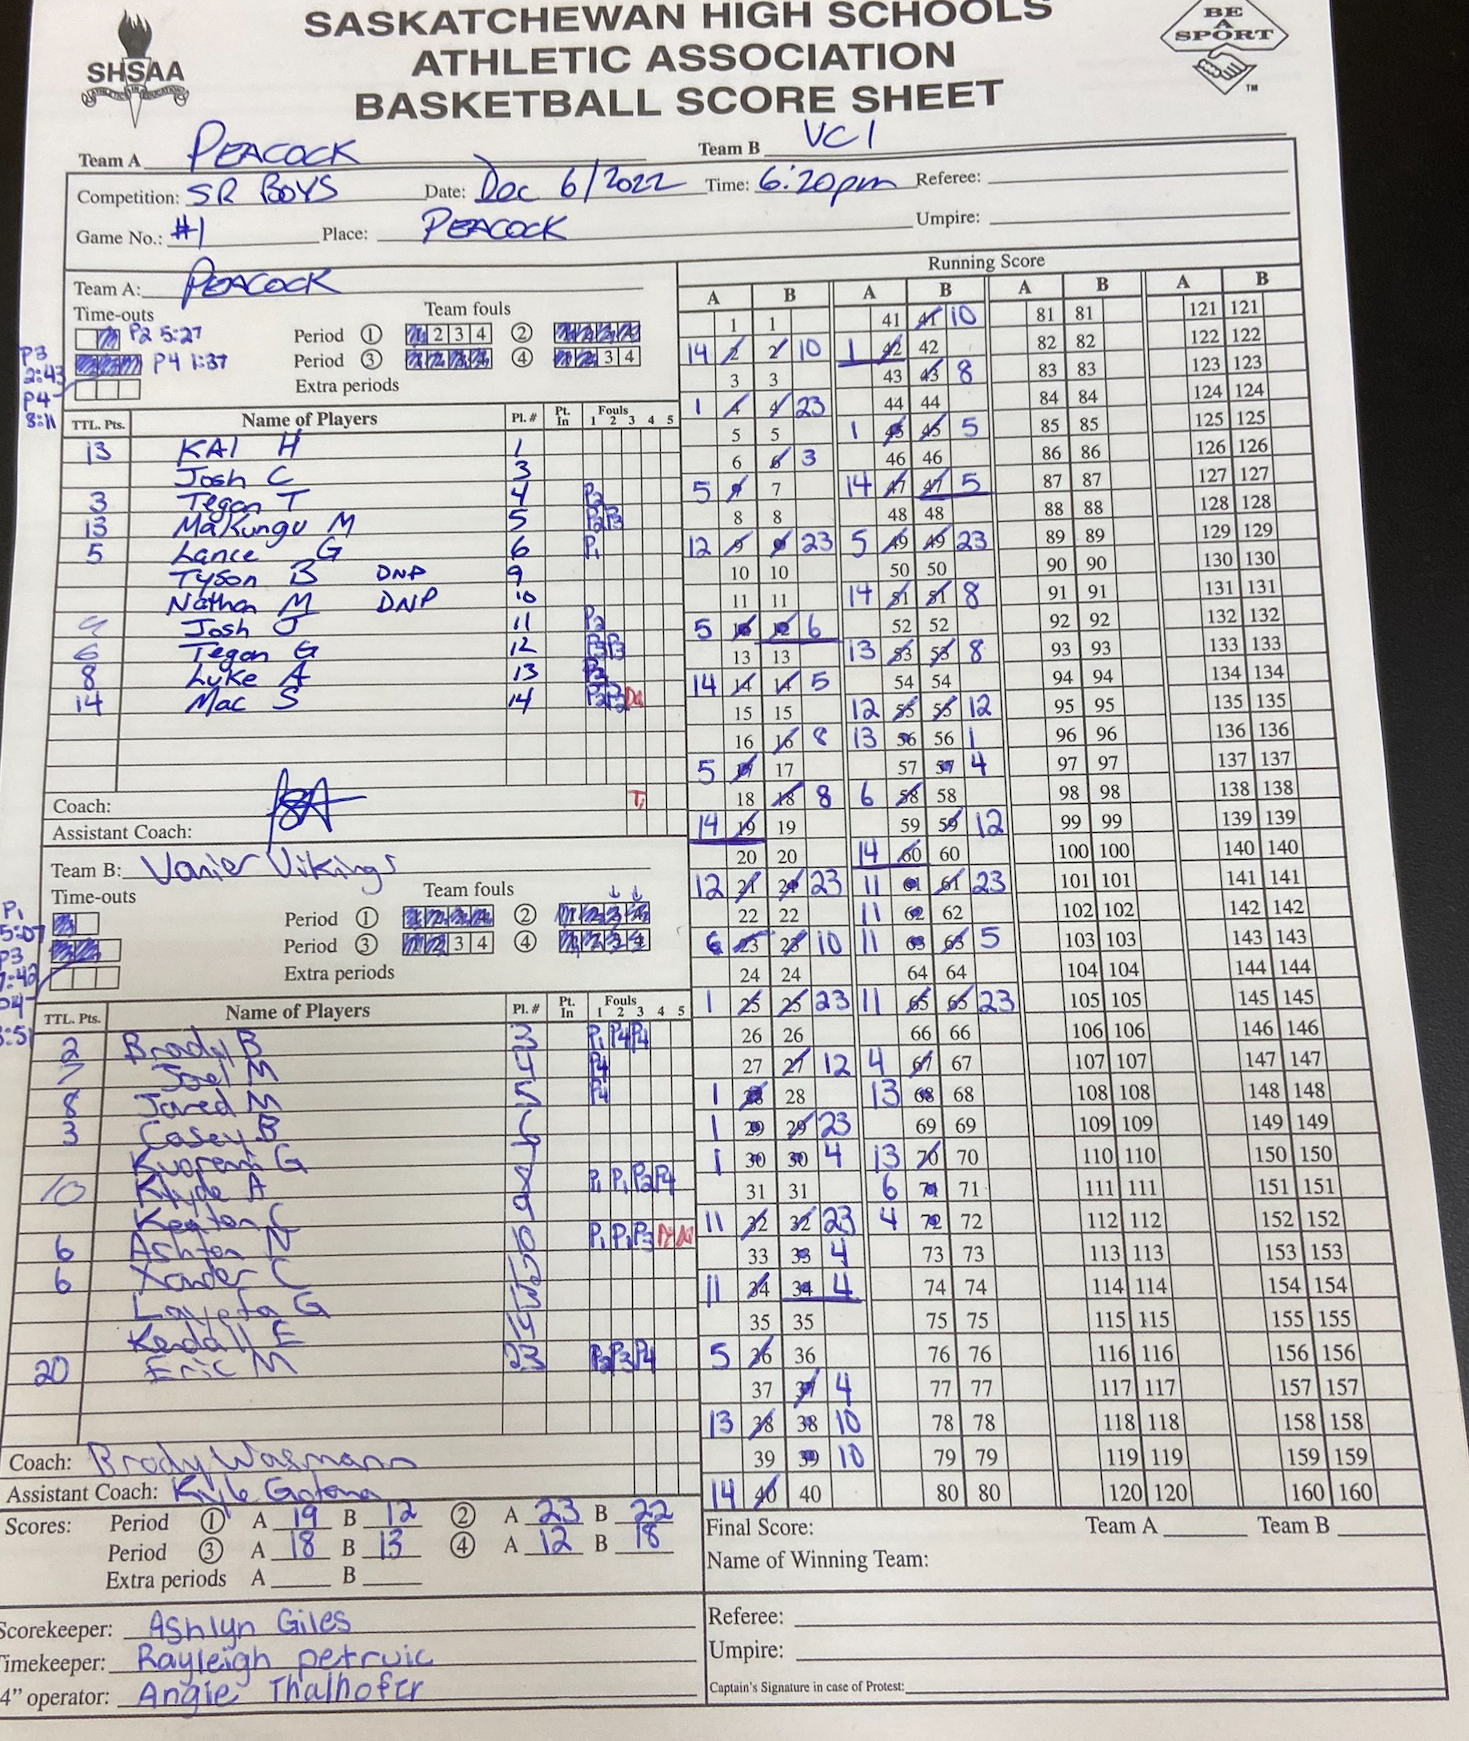 SASKATCHEWAN HIGH SCHOOLS
ATHLETIC ASSOCIATION
BASKETBALL SCORE SHEET
SHSAA
BE A SPORT
TM
Team A PEACOCK Team B VCI
Competition: SR BOYS Date: Dec 6/2022 Time: 6:20pm Referee:
Game No.: #1 Place: PEACOCK Umpire:
Team A: PEACOCK
Time-outs Team fouls
P2 5:27 Period 1 1 2 3 4 2 1 2 3 4
P3 2:43 P4 1:37 Period 3 1 2 3 4 4 1 2 3 4
P4 8:11 Extra periods
TTL. Pts. Name of Players Pl. # Pt. In Fouls 1 2 3 4 5
13 KAI H 1
Josh C 3
3 Tegan T 4 P2
13 Makungu M 5 P2 P3
5 Lance G 6 P1
Tyson B DNP 9
Nathan M DNP 10
Josh J 11 P2
6 Tegan G 12 P3 P3
8 Luke A 13 P3
14 Mac S 14 P2
Coach:
Assistant Coach:
Team B: Vanier Vikings
Time-outs Team fouls
P1 5:07 Period 1 1 2 3 4 2 1 2 3 4
P3 Period 3 1 2 3 4 4 1 2 3 4
Extra periods
TTL. Pts. Name of Players Pl. # Pt. In Fouls 1 2 3 4 5
2 Brady B 3 P1 P4 P4
7 Joel M 4 P4
8 Jared M 5 P4
3 Casey B
G
10 Klyde A 8 P1 P1 P2 P4
9
6 Ashton N 10 P1 P1 P3
6 Xander C 12
G
Kendall E 14
20 Eric M 23 P2 P3 P4
Coach: Brody Wasmann
Assistant Coach: Kyle
Scores: Period 1 A 19 B 12 2 A 23 B 22
Period 3 A 18 B 13 4 A 12 B 18
Extra periods A B
Scorekeeper: Ashlyn Giles
Timekeeper: Rayleigh petruic
4" operator: Angie Thalhofer
Running Score
A B A B A B A B
1 1 41 41 10 81 81 121 121
14 2 2 10 1 42 42 82 82 122 122
3 3 43 43 8 83 83 123 123
1 4 4 23 44 44 84 84 124 124
5 5 1 45 45 5 85 85 125 125
6 6 3 46 46 86 86 126 126
5 7 7 14 47 47 5 87 87 127 127
8 8 48 48 88 88 128 128
12 9 9 23 5 49 49 23 89 89 129 129
10 10 50 50 90 90 130 130
11 11 14 51 51 8 91 91 131 131
5 12 12 6 52 52 92 92 132 132
13 13 13 53 53 8 93 93 133 133
14 14 14 5 54 54 94 94 134 134
15 15 12 55 55 12 95 95 135 135
16 16 8 13 56 56 1 96 96 136 136
5 17 17 57 57 4 97 97 137 137
18 18 8 6 58 58 98 98 138 138
14 19 19 59 59 12 99 99 139 139
20 20 14 60 60 100 100 140 140
12 21 21 23 11 61 61 23 101 101 141 141
22 22 11 62 62 102 102 142 142
6 23 23 10 11 63 63 5 103 103 143 143
24 24 64 64 104 104 144 144
1 25 25 23 11 65 65 23 105 105 145 145
26 26 66 66 106 106 146 146
27 27 12 4 67 67 107 107 147 147
1 28 28 13 68 68 108 108 148 148
1 29 29 23 69 69 109 109 149 149
1 30 30 4 13 70 70 110 110 150 150
31 31 6 71 71 111 111 151 151
11 32 32 23 4 72 72 112 112 152 152
33 33 4 73 73 113 113 153 153
11 34 34 4 74 74 114 114 154 154
35 35 75 75 115 115 155 155
5 36 36 76 76 116 116 156 156
37 37 4 77 77 117 117 157 157
13 38 38 10 78 78 118 118 158 158
39 39 10 79 79 119 119 159 159
14 40 40 80 80 120 120 160 160
Final Score: Team A Team B
Name of Winning Team:
Referee:
Umpire:
Captain's Signature in case of Protest: